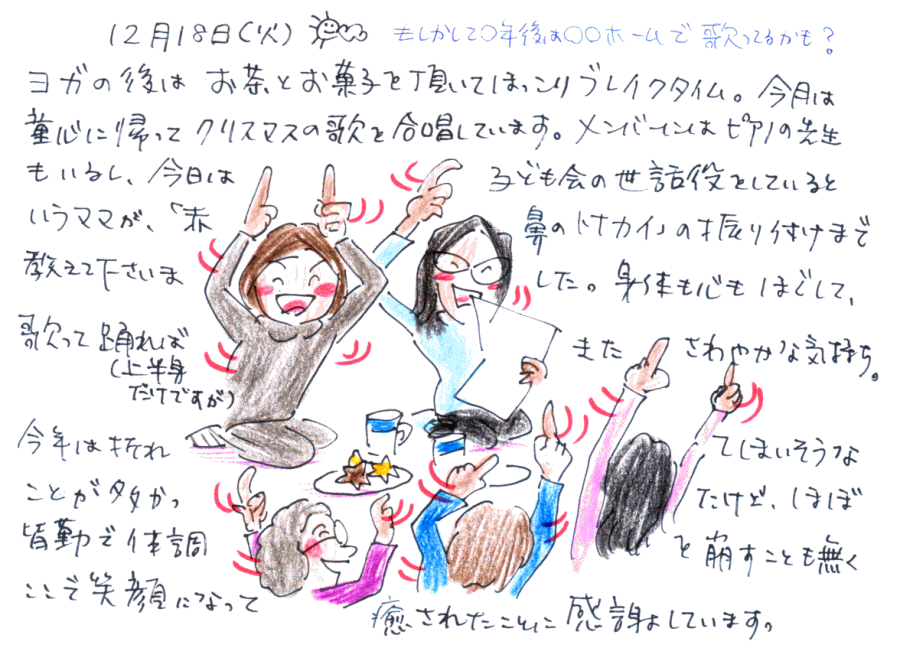 12月18日(火) もしかして〇年後は〇〇ホームで歌ってるかも?
ヨガの後は お茶とお菓子を頂いてほっこりブレイクタイム。今月は
童心に帰って クリスマスの歌を合唱しています。メンバーにはピアノの先生
もいるし、今日は 子ども会の世話役をしていると
いうママが、「赤 鼻のトナカイ」の振り付けまで
教えて下さいま した。身体も心もほぐして、
歌って踊れば また さわやかな気持ち。
(上半身
だけですが)
今年は折れ てしまいそうな
ことが多かっ たけど、ほぼ
皆勤で体調 を崩すことも無く
ここで笑顔になって 癒されたことに感謝しています。